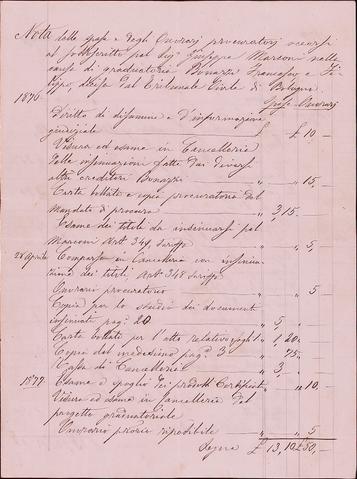 Nota delle spese e degli Onorari procuratori occorsi
al sottoscritto pel Sig. Giuseppe Marconi nella
causa di graduatoria Bonazzi Francesco e
decisa dal Tribunale Civile di Bologna.
Spese Onorari
1876
Diritto di disamina e d'informazione
giudiziale £ £ 10 "
Visura ed esame in Cancelleria
delle insinuazioni fatte dai diversi
altri creditori Bonazzi " " 15 "
Carte bollate e copia procuratoria del
Mandato di procura " 3,15 "
Esame dei titoli da insinuarsi pel
Marconi Art° 349 tariffa " " 5
28 Aprile Comparsa in Cancelleria con insinua
zione dei titoli Art° 348 tariffa
Onorario procuratorio " " 5
Copia per lo studio dei documenti
insinuati pag. 20 " 5 "
Carte bollate per l'atto relativo " 1,20 "
Copia del medesimo pag. 3 " 75 "
Tassa di Cancelleria " 3 "
1877 Esame e spoglio dei prodotti Certificati " 10 "
Visura ed esame in Cancelleria del
progetto graduatoriale
Onorario " " 5
Segue £ 13,10 £ 50,-